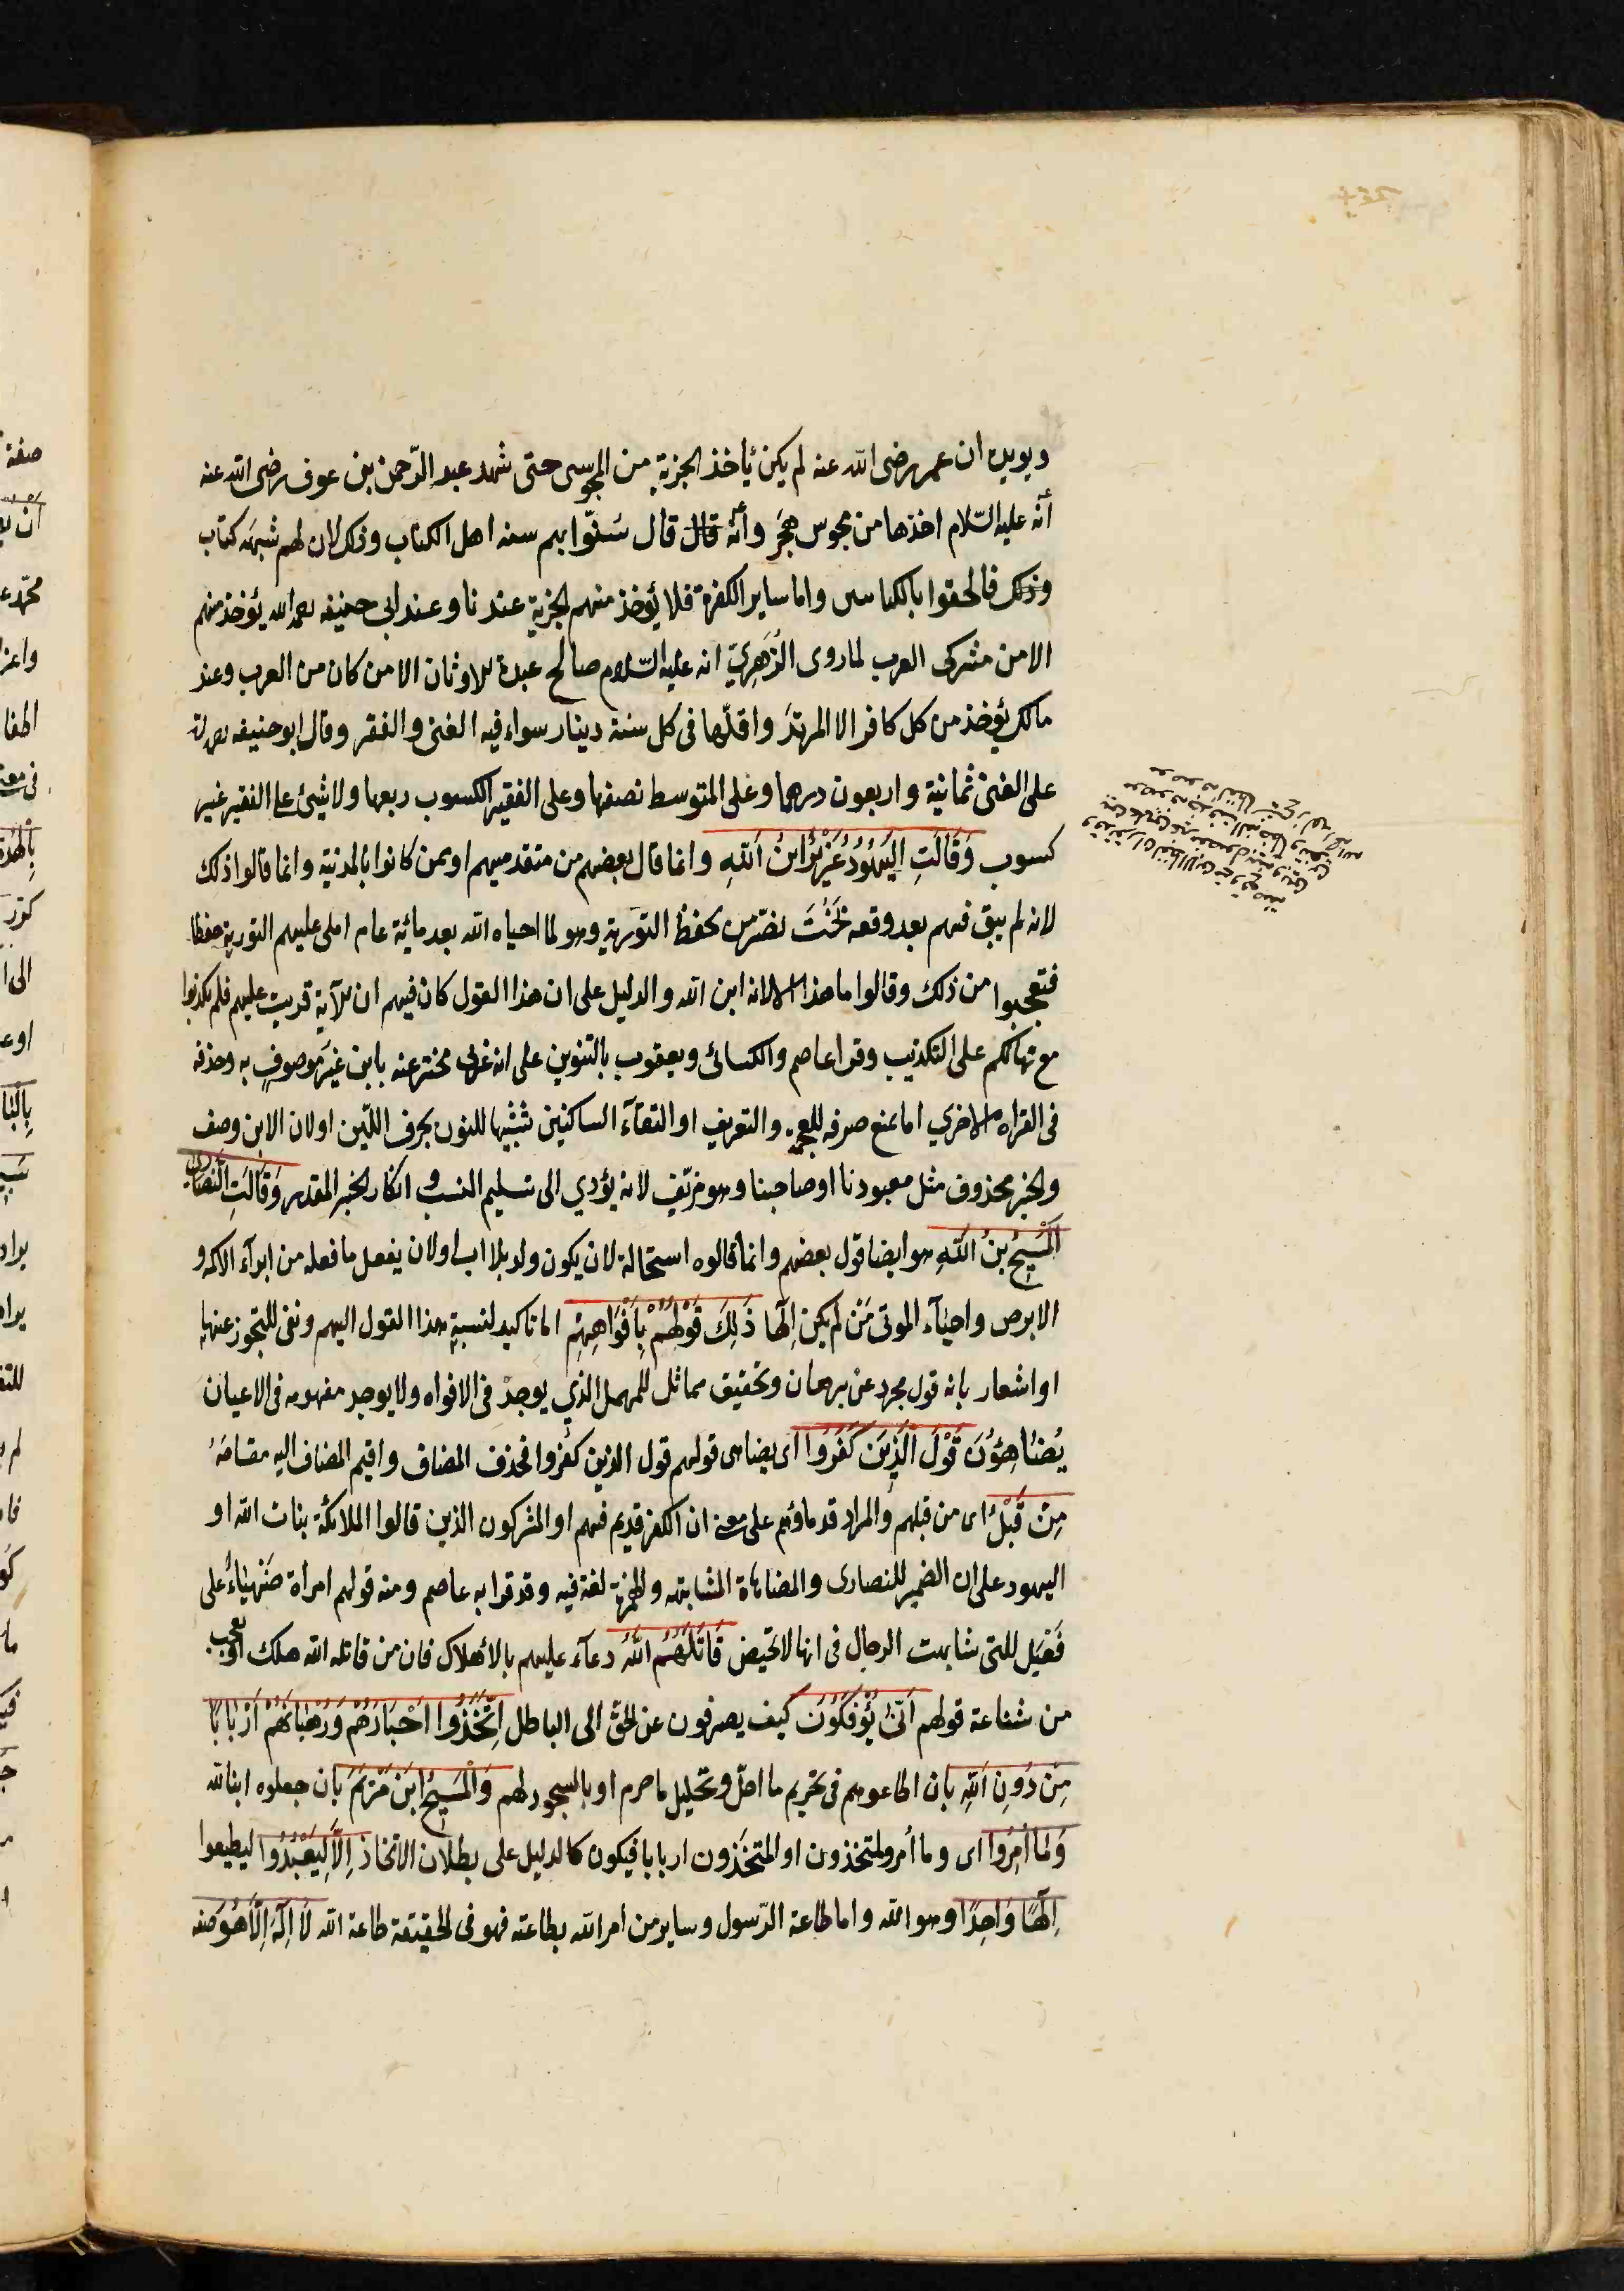 ويويده ان عمر رضى الله عنه لم يكن يأخذ الجزية من المجوسى حتى شهد عبد الرّحمن بن عوف رضى الله عنه
أنّه عليه السّلام اخذها من مجوس هَجَر وأنّه قال قال سُنّوا بهم سنه اهل الكتاب وذلك لان لهم شبهه كتاب
وذلك فالحقوا بالكتابين واما ساير الكفرة فلا يؤخذ منهم الجزية عندنا وعند ابى حنيفه رحمه الله يؤخذ منهم
الا من مشركى العرب لما روى الزُهرِيّ انه عليه السّلام صالح عبدة الاوثان الا من كان من العرب وعند
مالك يؤخذ من كل كافر الا المرتدّ واقلّها فى كل سنة دينار سواء فيه الغنى والفقر وقال ابو حنيفه رحمه الله
على الغنى ثمانية واربعون درهما وعلى المتوسط نصفها وعلى الفقير الكسوب ربعها ولا شئ على الفقير غير
كسوب وَقَالَتِ اليَهُودُ عُزَيْرٌ ابنُ اللّهِ وانما قال بعضهم من متقدميهم او ممن كانوا بالمدنية وانما قالوا ذلك
لانه لم يبق فيهم بعد وقعه بُخْتَ نصّر من يحفظ التورية وهو لما احياه الله بعد مائة عام املى عليهم التورية حفظا
فتعجبوا من ذلك وقالوا ما هذا الا لانه ابن الله والدليل على ان هذا القول كان فيهم ان الآية قريت عليهم فلم يكذبوا
مع تهالكهم على التكذيب وقرا عاصم والكسائى ويعقوب بالتنوين على انه عربى مخبر عنه بابن غيرَ موصوفٍ به وحذفه
فى القراه الاخري اما لمنع صرفه للعجمه والتعريف او التقآء الساكنين تشبيها للنون بحرف اللّين او لان الابن وصف
والخبر محذوف مثل معبودنا او صاحبنا وهو مزيّف لانه يؤدي الى تسليم النسب وانكار الخبر المقدر وَقَالَتِ النَّصَارَى
المَسِيحُ بنُ اللّهِ هو ايضا قول بعضهم وانما قالوه استحالة لان يكون ولد بلا اب او لان يفعل ما فعله من ابرآء الاكمه و
الابرص واحيآء الموتى مَنْ لم يكن إلٰها ذٰلِكَ قَوْلُهُمْ بِأَفْوَاهِهِمْ اما تاكيد لنسبةِ هذا القول اليهم ونفى للتجوز عنها
او اشعار بانه قول مجرد عن برهان وتحقيق مماثل للمهمل الذي يوجد فى الافواه ولا يوجد مفهومه فى الاعيان
يُضَاهِؤُنَ قَوْلَ الَّذِينَ كَفَرُوا اى يضاهى قولهم قول الذين كفروا فحذف المضاف واقيم المضاف اليه مقامَهُ
مِنْ قَبْلُ اى من قبلهم والمراد قدماؤهم على معنى ان الكفر قديم فيهم او المشركون الذين قالوا الملائكة بنات الله او
اليهود على ان الضمير للنصارى والمضاهاة المشابهه والهمزة لغة فيه وقد قرا به عاصم ومنه قولهم امراة ضَهْيَاءُ على
فَعْيَل للتى شابهت الرجال فى انها لا تحيض قَاتَلَهُمُ اللّهُ دعآء عليهم بالأهلاك فان من قاتله الله هلك او تعجب
من شناعة قولهم اَنّى يُؤْفَكُونَ كيف يصرفون عن الحقّ الى الباطل اِتَّخَذُوا اَحْبَارَهُمْ وَرُهْبَانَهُمْ اَرْبَابًا
مِنْ دُونِ اللّهِ بان اطاعوهم فى تحريم ما احلّ وتحليل ما حرم او بالسجود لهم وَالْمَسِيحَ ابنَ مَرْيَمَ بان جعلوه ابنا لله
وَمَا اُمِرُوا اى وما أُمر المتخذون او المتخَذون اربابا فيكون كالدليل على بطلان الاتخاذ اِلَّا لِيَعْبُدُوا ليطيعوا
اِلٰهًا وَاحِدًا وهو الله واما طاعة الرّسول وساير من امر الله بطاعته فهو فى الحقيقة طاعة الله لَا اِلٰهَ اِلَّا هُوَ صفه